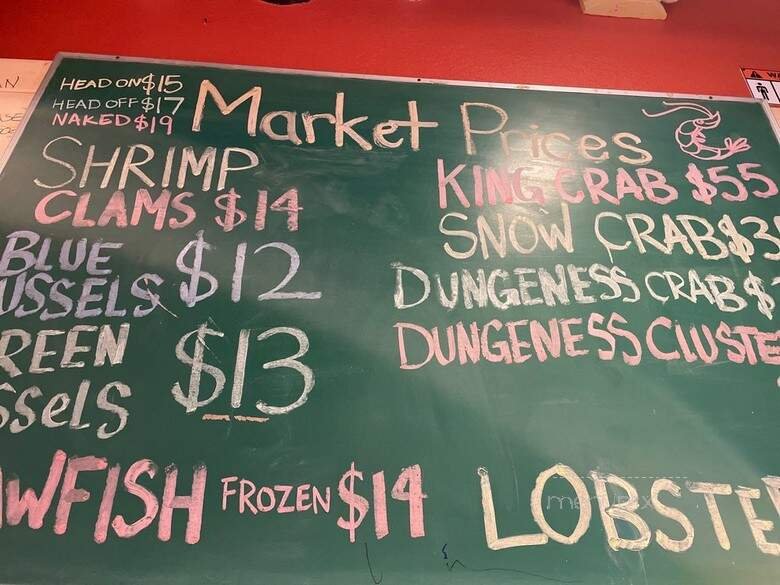 HEAD ON $15
HEAD OFF $17
NAKED $19
Market Prices
SHRIMP
CLAMS $14
BLUE
USSELS $12
REEN
SSELS $13
WFISH FROZEN $14
KING CRAB $55
SNOW CRAB $3
DUNGENESS CRAB $
DUNGENESS CLUSTE
LOBSTE